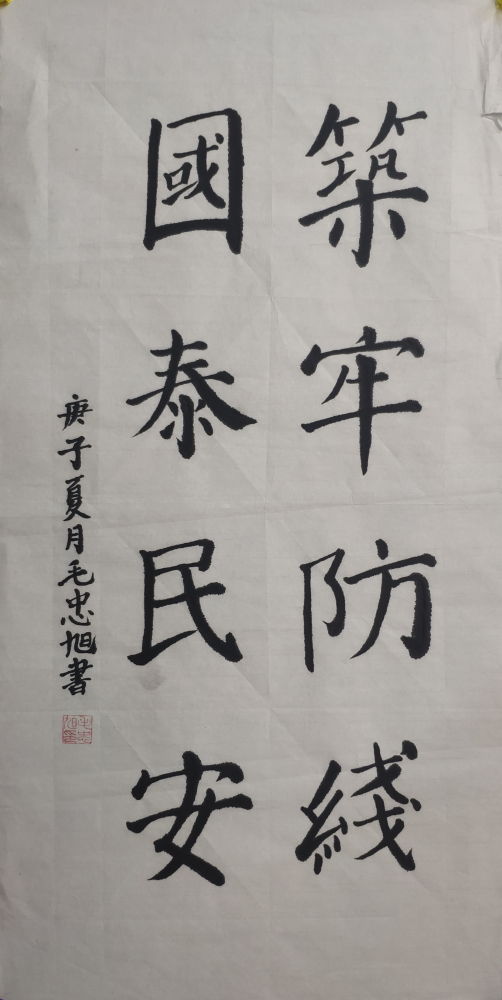 築牢防綫
國泰民安
庚子夏月毛忠旭書